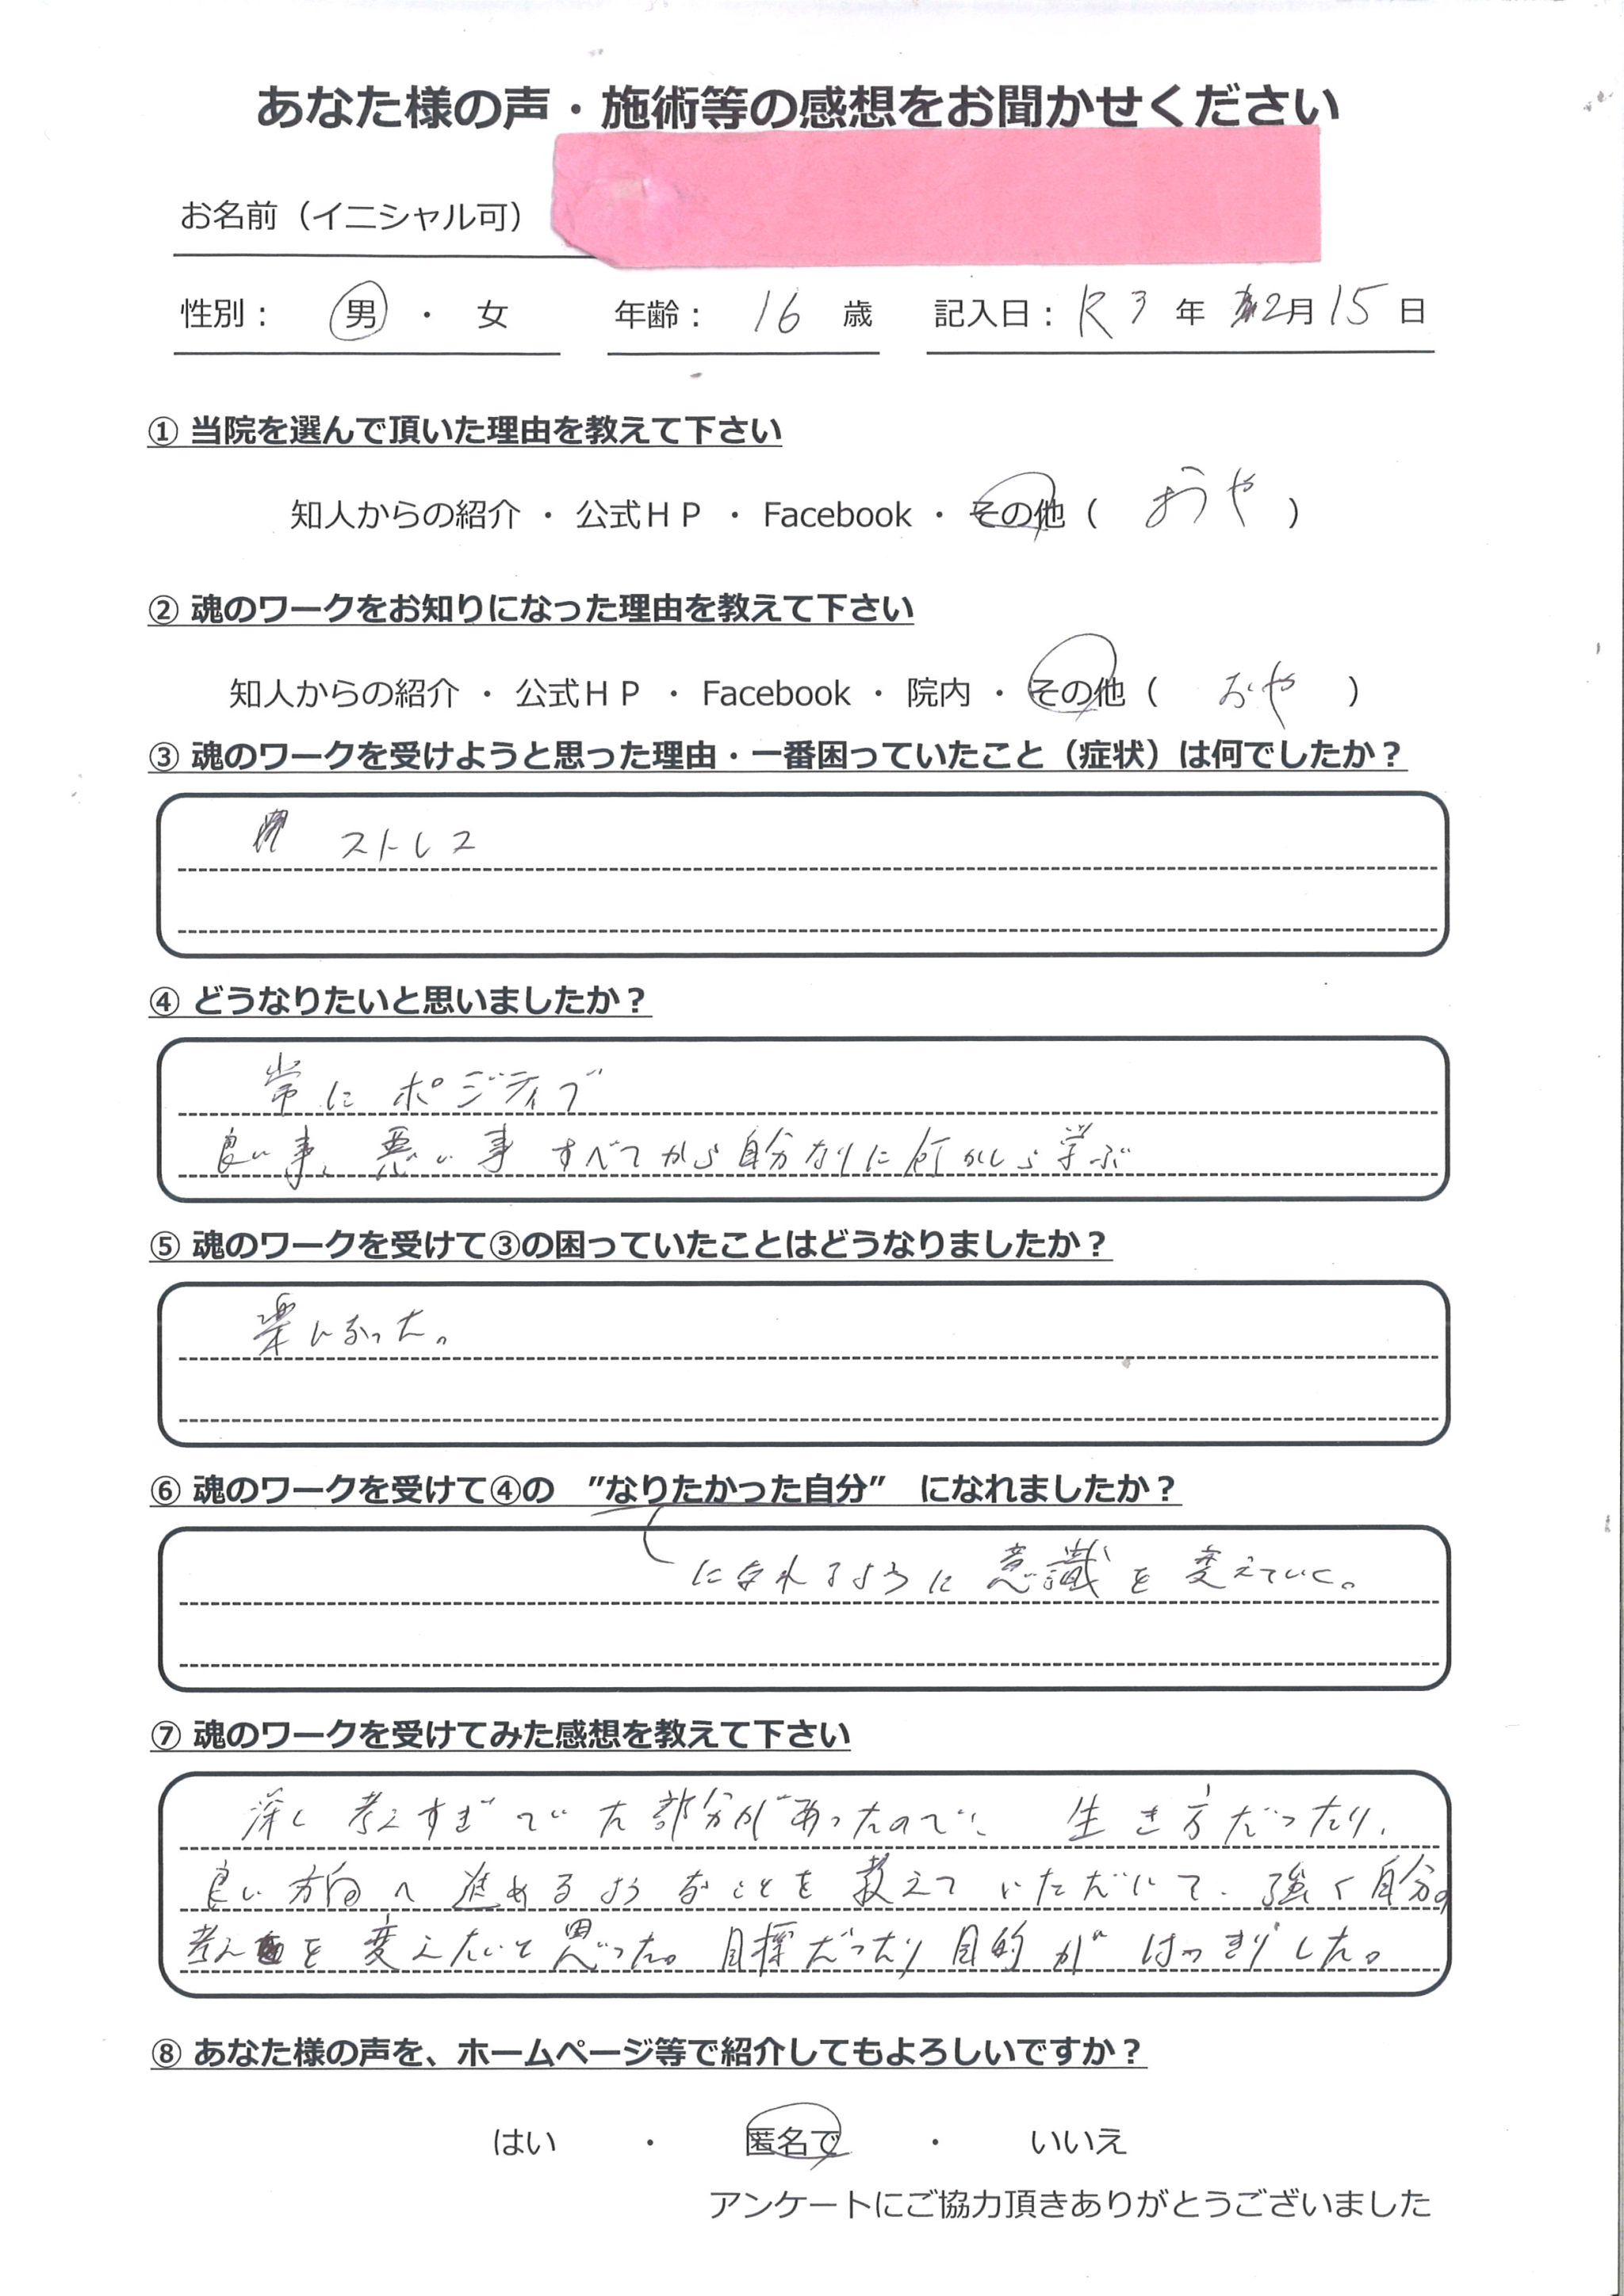 あなた様の声・施術等の感想をお聞かせください
お名前（イニシャル可）
性別： 男 ・ 女 年齢： 16 歳 記入日： R3 年 2月 15 日
① 当院を選んで頂いた理由を教えて下さい
知人からの紹介 ・ 公式ＨＰ ・ Facebook ・ その他（ おや ）
② 魂のワークをお知りになった理由を教えて下さい
知人からの紹介 ・ 公式ＨＰ ・ Facebook ・ 院内 ・ その他（ おや ）
③ 魂のワークを受けようと思った理由・一番困っていたこと（症状）は何でしたか？
ストレス
④ どうなりたいと思いましたか？
常にポジティブ
良い事、悪い事すべてから自分なりに何かしら学ぶ
⑤ 魂のワークを受けて③の困っていたことはどうなりましたか？
楽になった。
⑥ 魂のワークを受けて④の ”なりたかった自分” になれましたか？
になれるように意識を変えていく。
⑦ 魂のワークを受けてみた感想を教えて下さい
深く考えすぎていた部分があったので、生き方だったり、
良い方向へ進めるようなことを教えていただいて、強く自分の
考えを変えたいと思った。目標だったり目的がはっきりした。
⑧ あなた様の声を、ホームページ等で紹介してもよろしいですか？
はい ・ 匿名で ・ いいえ
アンケートにご協力頂きありがとうございました